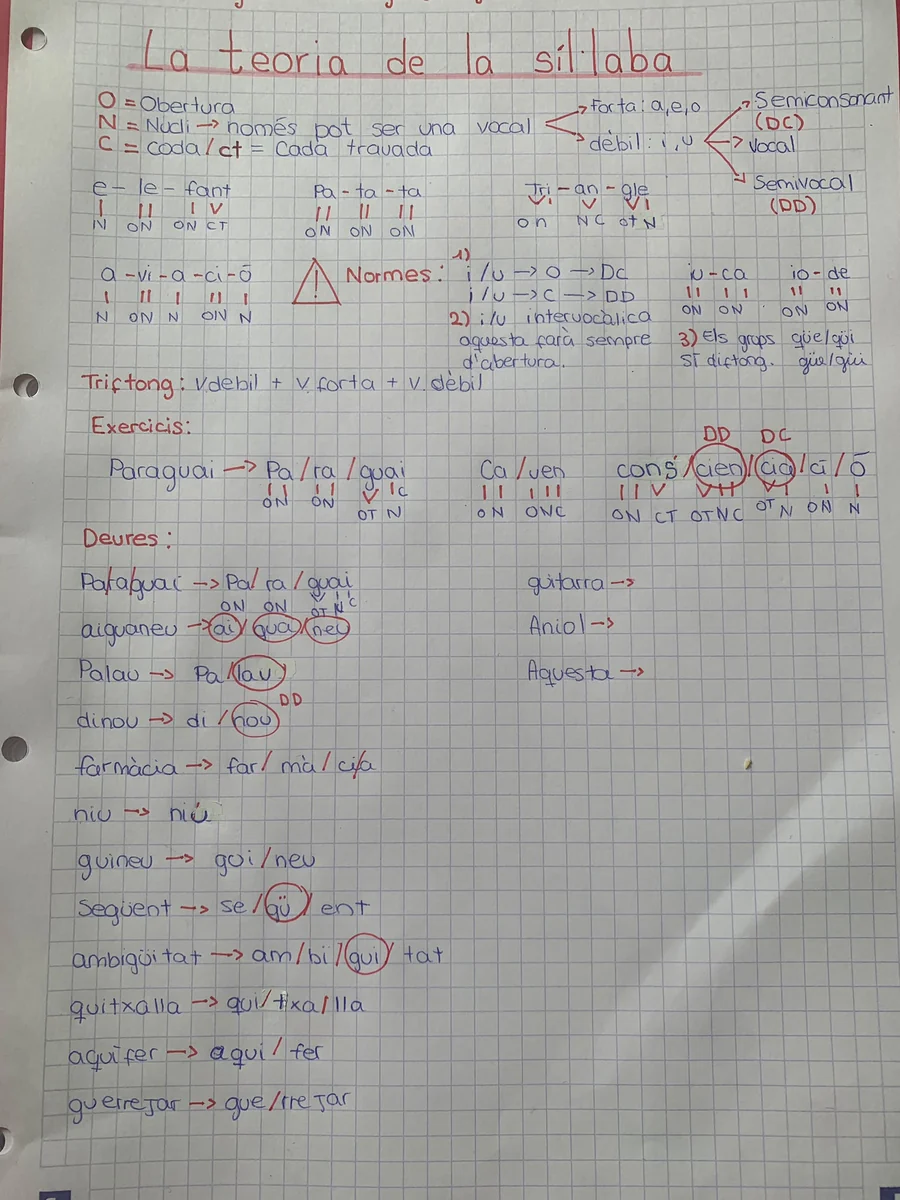 La teoria de la síl·laba
O = Obertura
N = Nucli → només pot ser una vocal
C = coda/ct = Coda travada
forta: a,e,o
dèbil: i,u
Semiconsonant
(DC)
vocal
Semivocal
(DD)
e - le - fant Pa - ta - ta Tri - an - gle
N ON ON CT ON ON ON on NC OT N
a - vi - a - ci - ó
N ON N ON N
Normes: 1) i/u → O → DC
i/u → C → DD
2) i/u intervocàlica
aquesta farà sempre
d'abertura.
iu - ca io - de
ON ON ON ON
3) Els grups qüe/qüi
SÍ diftong. güe/güi
Triftong: V.debil + V.forta + V.dèbil
Exercicis:
DD DC
Paraguai → Pa/ra/guai Ca/uen cons/cien/cia/ci/ó
ON ON OT N C ON ONC ON CT OTNC OT N ON N
Deures:
Paraguai → Pa/ra/guai
ON ON OT N C
aiguaneu → ai/gua/neu
Palau → Pa/lau
dinou → di/nou DD
farmàcia → far/mà/ci/a
niu → niu
guineu → gui/neu
Següent → se/gü/ent
ambigüitat → am/bi/gui/tat
quitxalla → qui/txa/lla
aqüífer → aqui/fer
guerrejar → gue/rrejar
guitarra →
Aniol →
Aquesta →